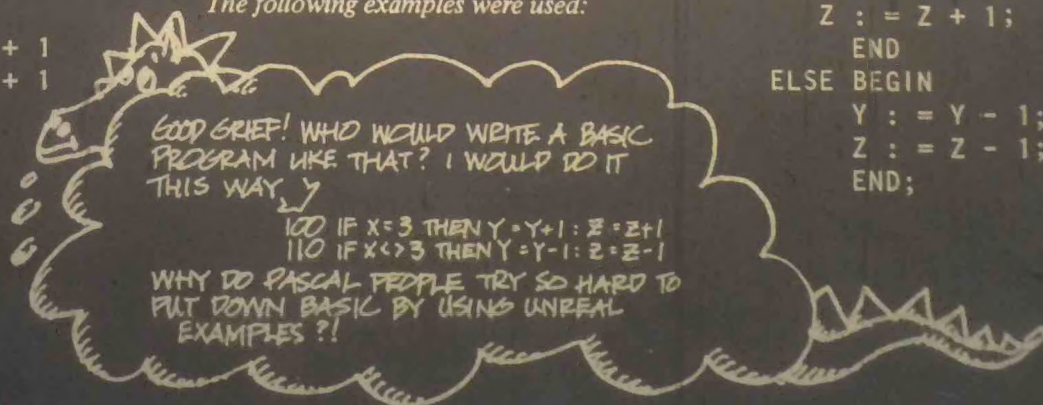 The following examples were used:
+ 1
+ 1
Z : = Z + 1;
END
ELSE BEGIN
Y : = Y - 1;
Z : = Z - 1;
END;
GOOD GRIEF! WHO WOULD WRITE A BASIC
PROGRAM LIKE THAT? I WOULD DO IT
THIS WAY
100 IF X=3 THEN Y=Y+1: Z=Z+1
110 IF X<>3 THEN Y=Y-1: Z=Z-1
WHY DO PASCAL PEOPLE TRY SO HARD TO
PUT DOWN BASIC BY USING UNREAL
EXAMPLES?!